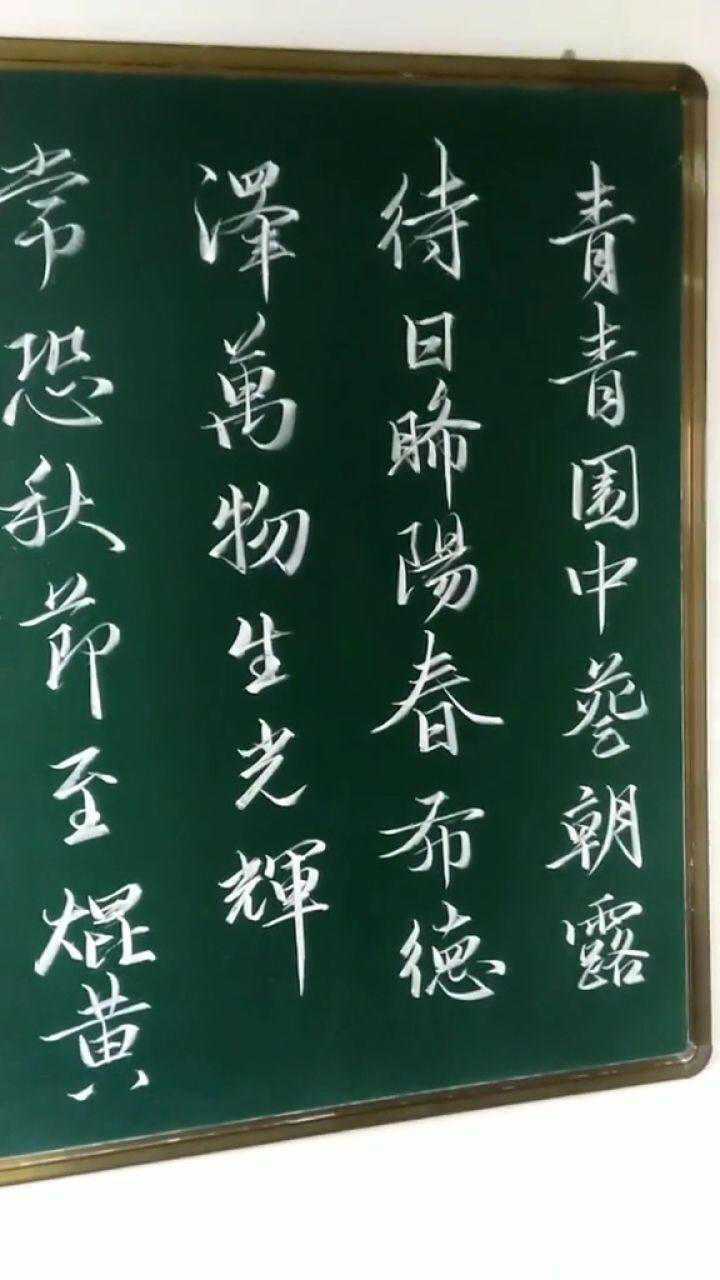 青青園中葵朝露
待日晞陽春布德
澤萬物生光輝
常恐秋節至焜黄